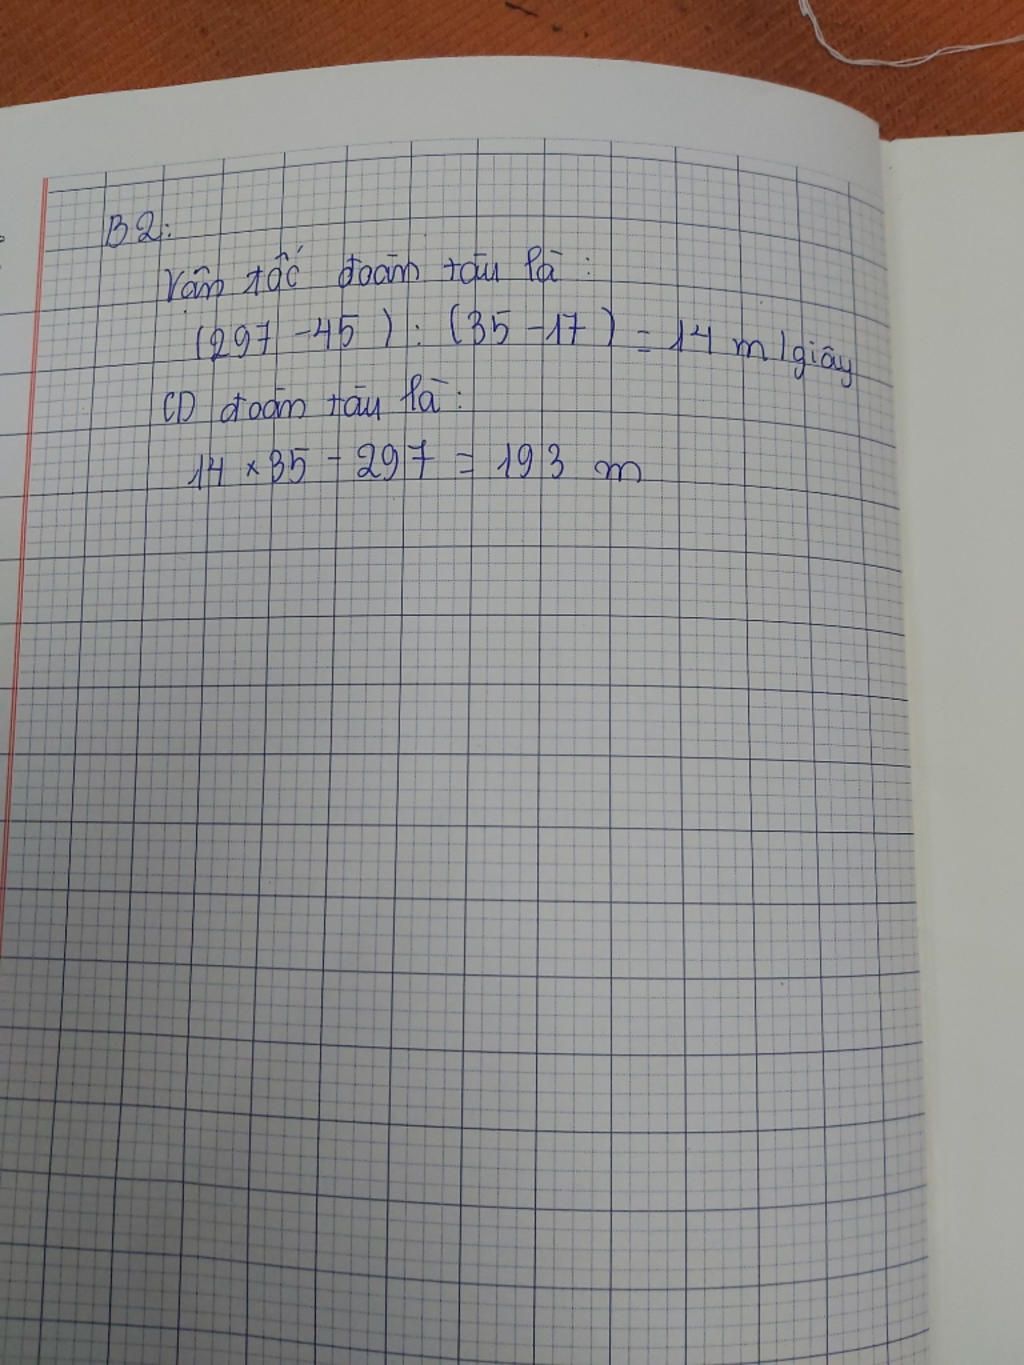 B2:
Vân tốc đoàn tàu là:
(297 - 45) : (35 - 17) = 14 m/giây
CD đoàn tàu là:
14 × 35 - 297 = 193 m